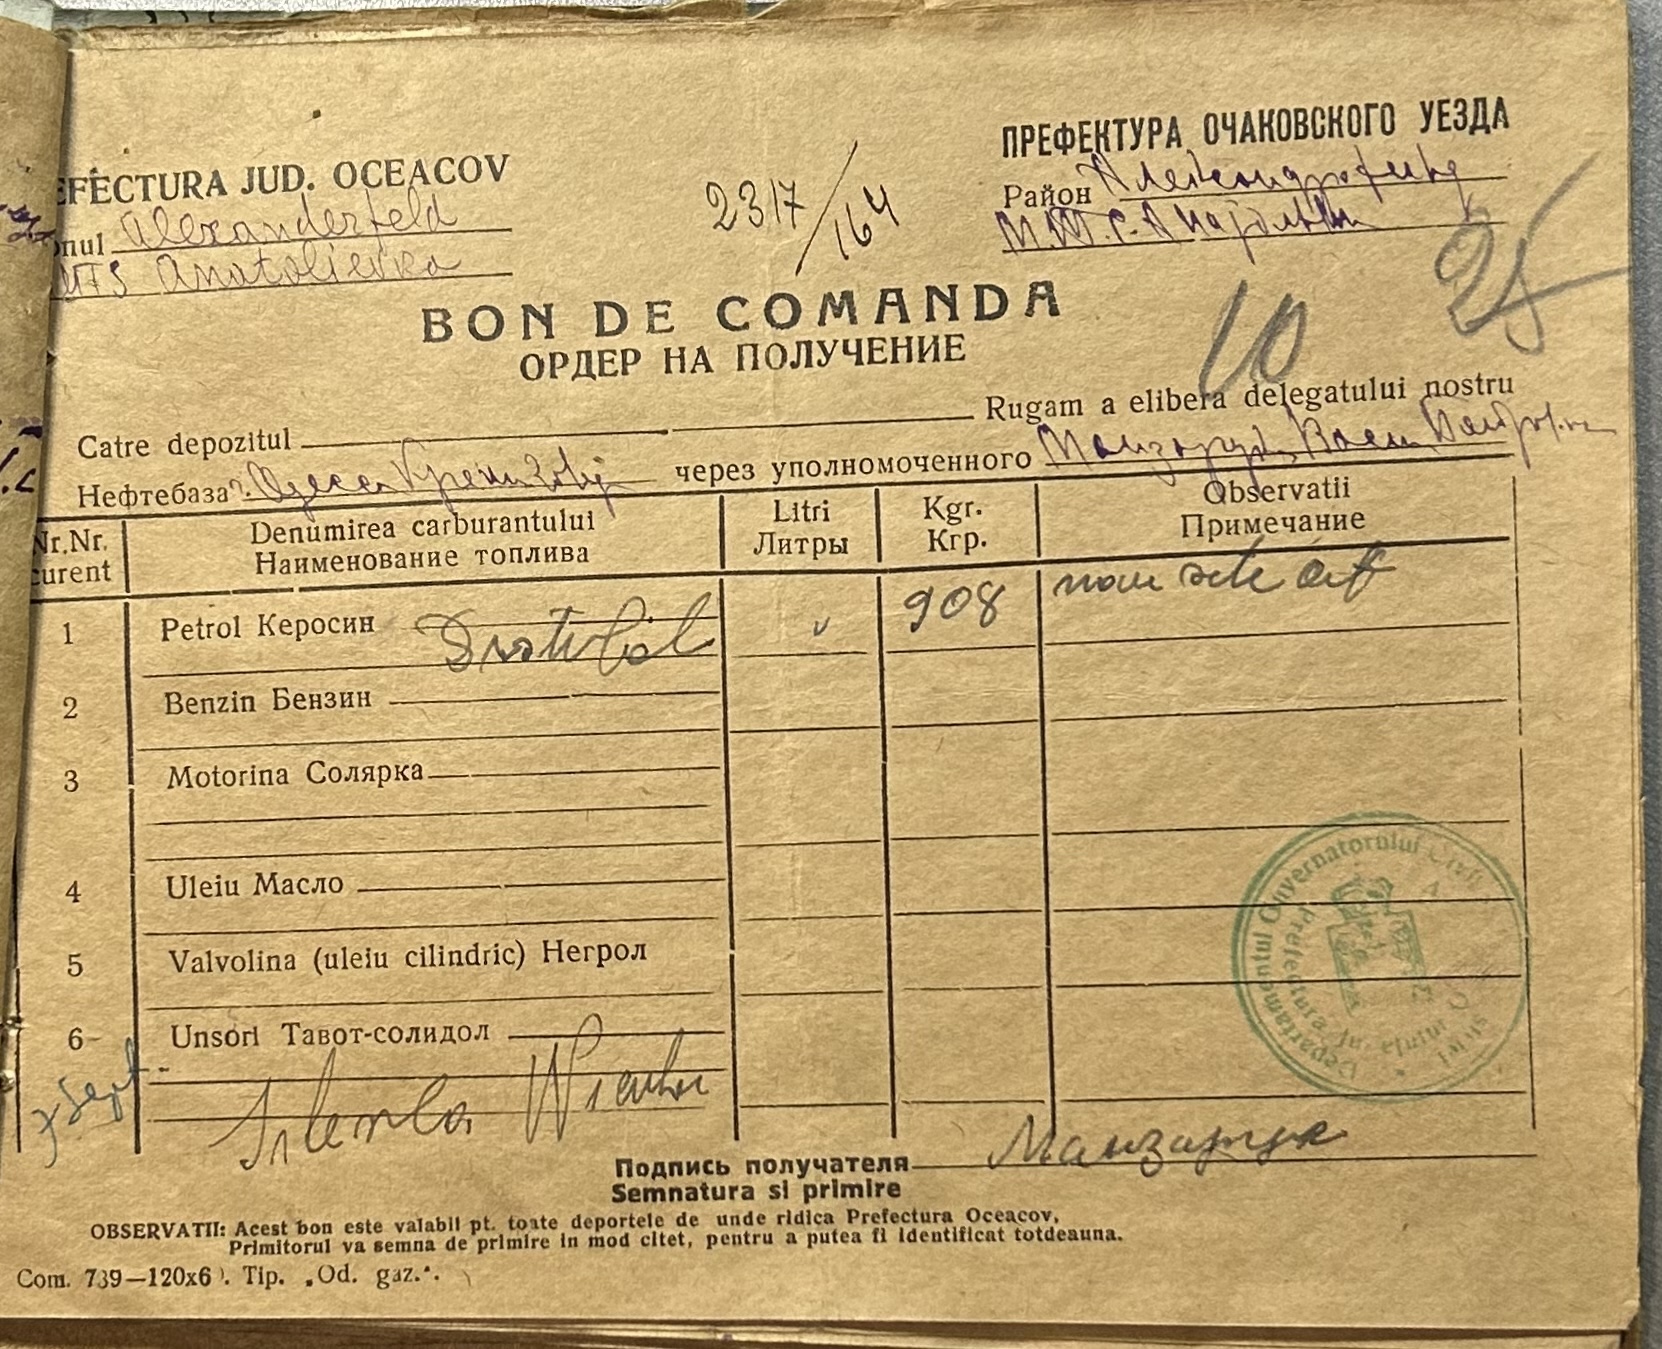 EFECTURA JUD. OCEACOV
ПРЕФЕКТУРА ОЧАКОВСКОГО УЕЗДА
onul Alexanderfeld
Район Александрфельд
MTS Anatolievka
М.Т.С. Анатольевка
2317/164
BON DE COMANDA
ОРДЕР НА ПОЛУЧЕНИЕ
10
25
Catre depozitul Rugam a elibera delegatului nostru
Нефтебаза г. Одесса через уполномоченного Манзарук
Nr.Nr. curent
Denumirea carburantului
Наименование топлива
Litri
Литры
Kgr.
Кгр.
Observatii
Примечание
1 Petrol Керосин 908 nouă sute opt
2 Benzin Бензин
3 Motorina Солярка
4 Uleiu Масло
5 Valvolina (uleiu cilindric) Негрол
6- Unsori Тавот-солидол
7 Sept
Departamentul Guvernatorului Civil
Prefectura
Подпись получателя Манзарук
Semnatura si primire
OBSERVATII: Acest bon este valabil pt. toate deportele de unde ridica Prefectura Oceacov,
Primitorul va semna de primire in mod citet, pentru a putea fi identificat totdeauna.
Com. 739—120x6 . Tip. „Od. gaz.".